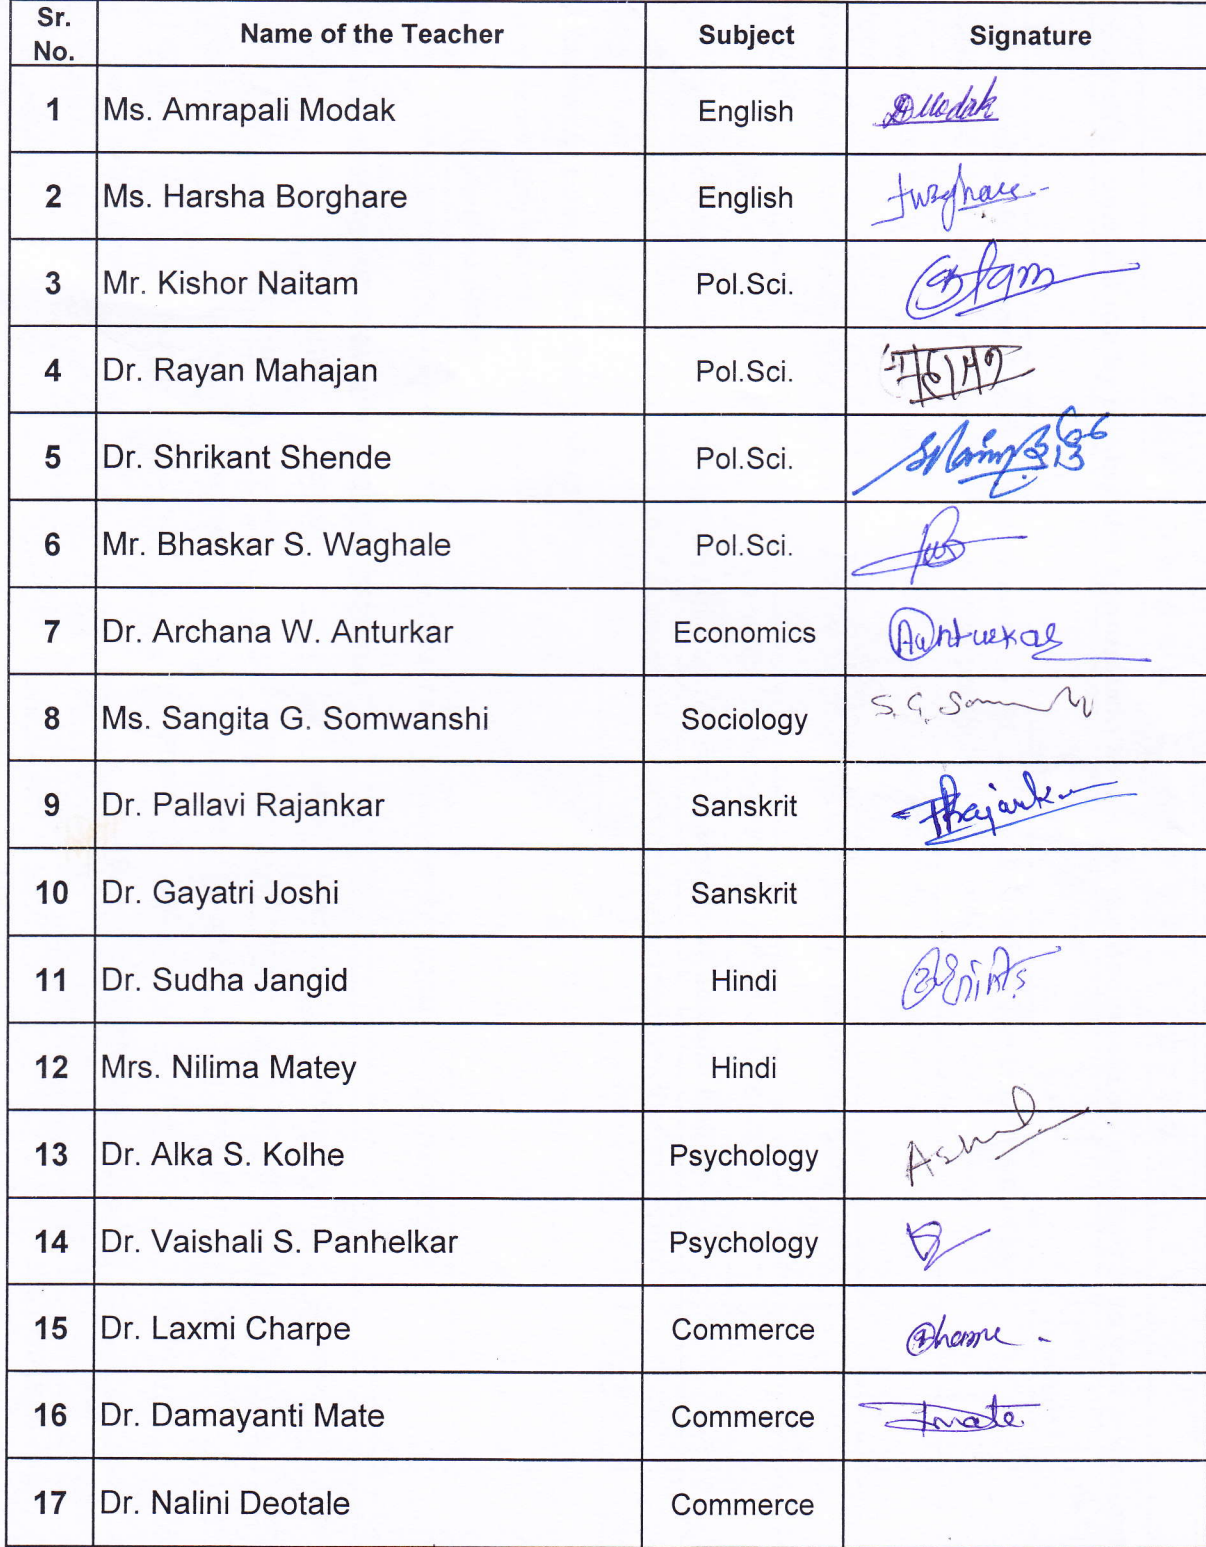 Sr. No. Name of the Teacher Subject Signature
1 Ms. Amrapali Modak English
2 Ms. Harsha Borghare English
3 Mr. Kishor Naitam Pol.Sci.
4 Dr. Rayan Mahajan Pol.Sci.
5 Dr. Shrikant Shende Pol.Sci.
6 Mr. Bhaskar S. Waghale Pol.Sci.
7 Dr. Archana W. Anturkar Economics
8 Ms. Sangita G. Somwanshi Sociology S. G.
9 Dr. Pallavi Rajankar Sanskrit
10 Dr. Gayatri Joshi Sanskrit
11 Dr. Sudha Jangid Hindi
12 Mrs. Nilima Matey Hindi
13 Dr. Alka S. Kolhe Psychology
14 Dr. Vaishali S. Panhelkar Psychology
15 Dr. Laxmi Charpe Commerce
16 Dr. Damayanti Mate Commerce
17 Dr. Nalini Deotale Commerce